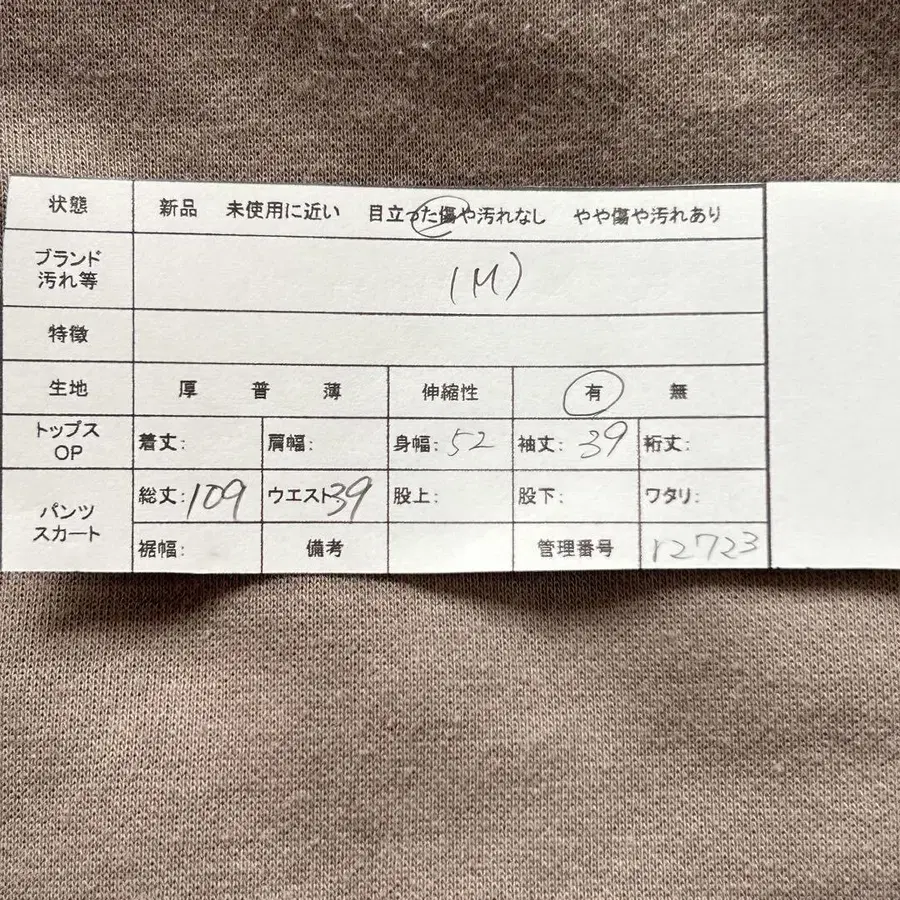 状態 新品 未使用に近い 目立った傷や汚れなし やや傷や汚れあり
ブランド
汚れ等
(M)
特徴
生地 厚 普 薄 伸縮性 有 無
トップス
OP
着丈: 肩幅: 身幅: 52 袖丈: 39 裄丈:
パンツ
スカート
総丈: 109 ウエスト39 股上: 股下: ワタリ:
裾幅: 備考 管理番号 r2723